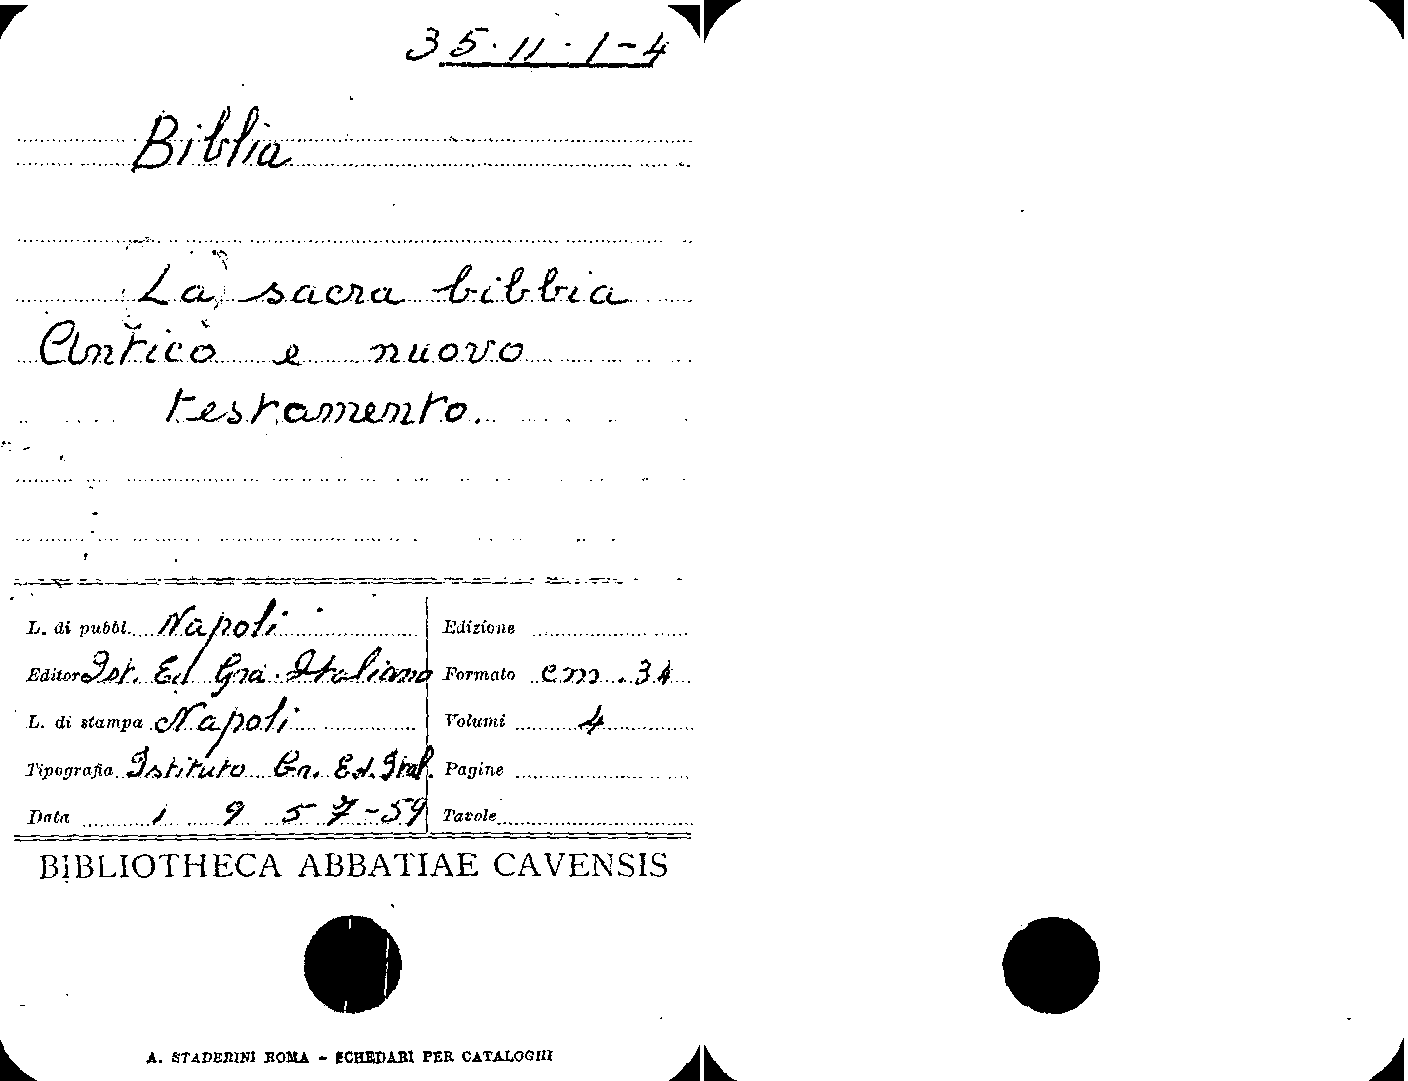 35.11.1-4
Biblia
La sacra bibbia
Antico e nuovo
testamento.
L. di pubbl. Napoli
Editore Ist. Ed Gra. Italiano
L. di stampa Napoli
Tipografia Istituto Gr. Ed. Ital.
Data 1957-59
Edizione
Formato cm. 34
Volumi 4
Pagine
Tavole
BIBLIOTHECA ABBATIAE CAVENSIS
A. STADERINI ROMA - SCHEDARI PER CATALOGHI